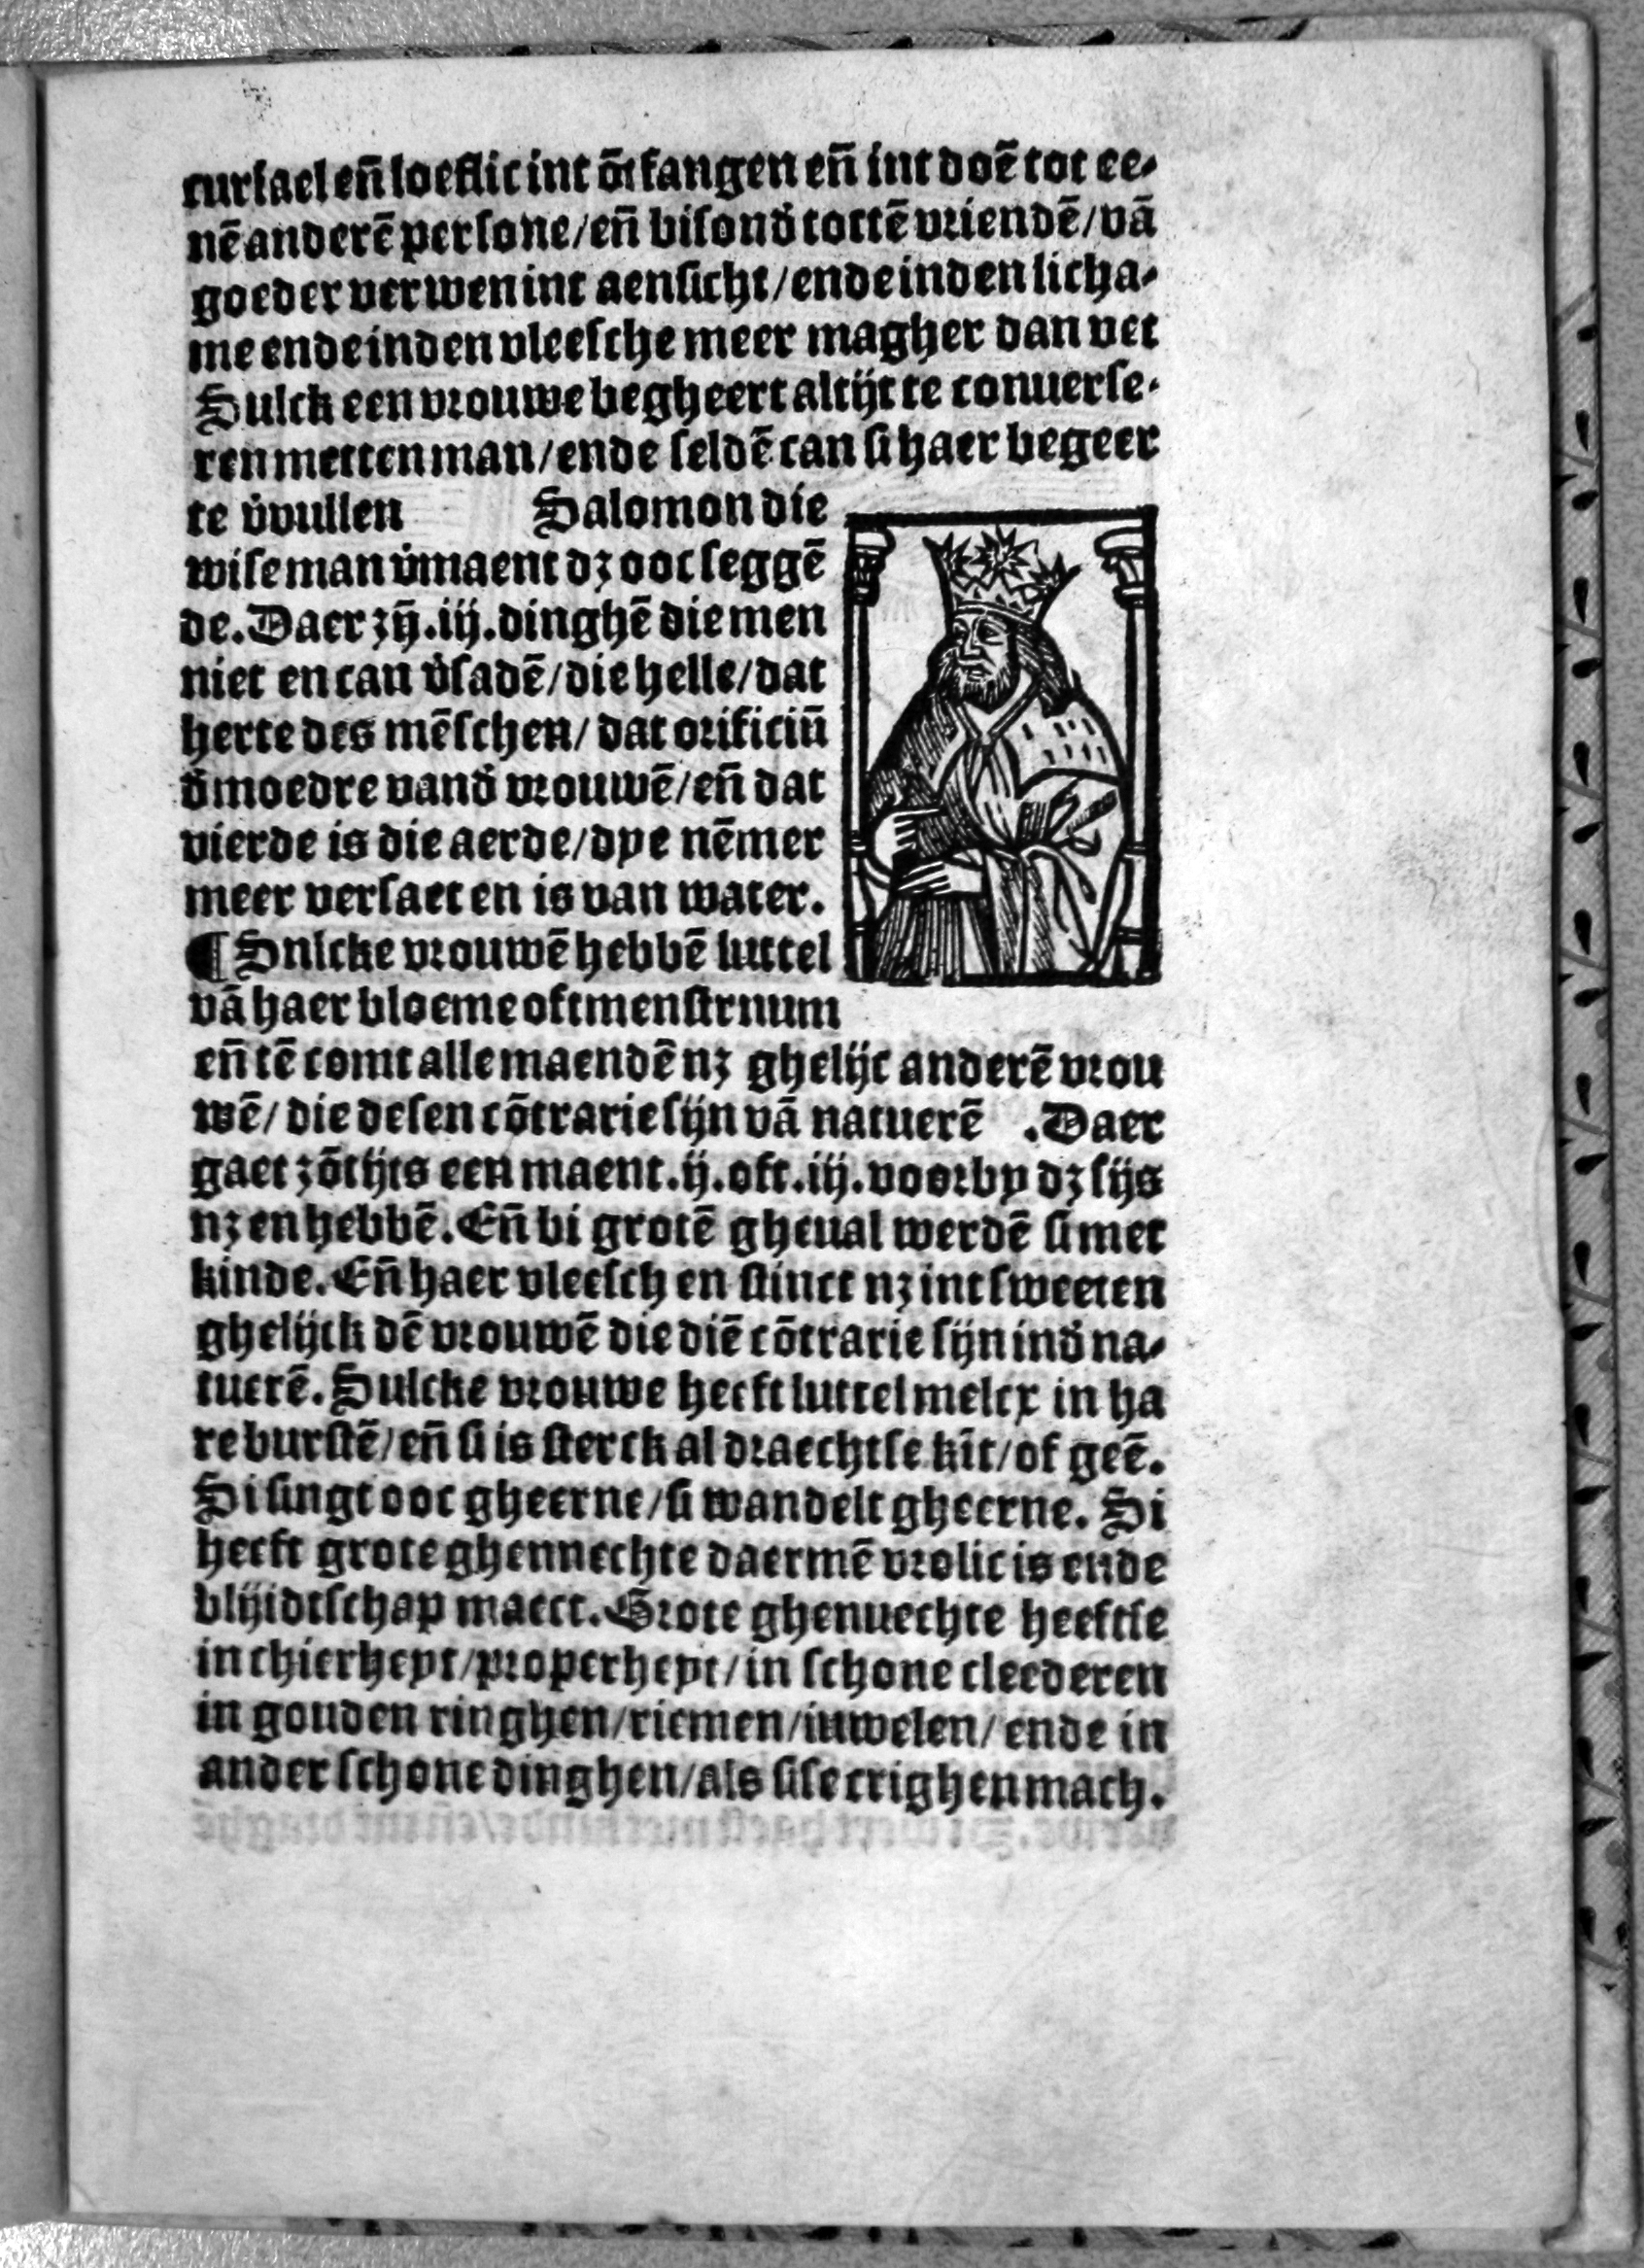 curſael en̄ loeflic int ōtfangen en̄ int doē tot ee⸗
nē anderē perſone/en̄ biſond̾ tottē vriendē/vā
goeder verwen int aenſicht/ende inden licha⸗
me ende inden vleeſche meer magher dan vet
Sulck een vrouwe begheert altijt te conuerſe⸗
ren metten man/ende ſeldē can ſi haer begeer
te v̾vullen Salomon die
wiſe man v̾maent dꝫ ooc ſeggē
de. Daer zȳ.iij.dinghē die men
niet en can v̾ſadē/die helle/dat
herte des mēſchen/dat orificiū
d̾ moedre vand̾ vrouwē/en̄ dat
vierde is die aerde/dye nēmer
meer verſaet en is van water.
¶ Snlcke vrouwē hebbē luttel
vā haer bloeme oft menſtrnum
en̄ tē comt alle maendē nꝫ ghelijc anderē vrou
wē/die deſen cōtrarie ſijn vā natuerē .Daer
gaet zōtijts een maent.ij.oft.iij.voorby dꝫ ſijs
nꝫ en hebbē. En̄ bi grotē gheual werdē ſi met
kinde. En̄ haer vleeſch en ſtinct nꝫ int ſweeten
ghelijck dē vrouwē die diē cōtrarie ſijn ind̾ na⸗
tuerē. Sulcke vrouwe heeft luttel melcx in ha
re burſtē/en̄ ſi is ſterck al draechtſe kīt/of geē.
Si ſingt ooc gheerne/ſi wandelt gheerne. Si
heeft grote ghennechte daermē vrolic is ende
blijidtſchap maect. Grote ghenuechte heeftſe
in chierheyt/properheyt/in ſchone cleederen
in gouden ringhen/riemen/iuwelen/ende in
ander ſchone dinghen/als ſiſe crighen mach.